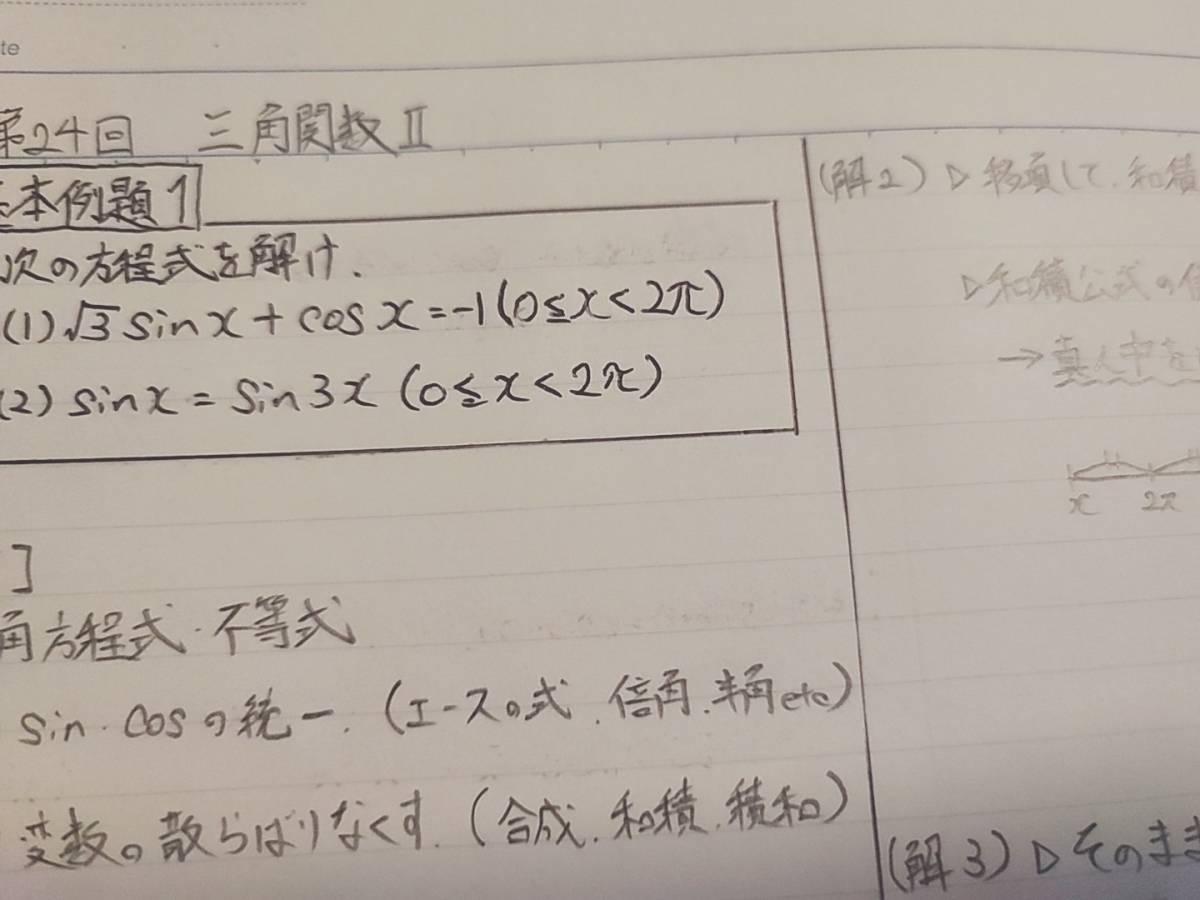 te
第24回 三角関数Ⅱ
基本例題1
次の方程式を解け.
(1) √3 sinx + cosx = -1 (0≦x<2π)
(2) sinx = sin3x (0≦x<2π)
]
角方程式・不等式
sin・cosの統一. (エースの式. 倍角. 半角etc)
変数の散らばりなくす. (合成. 和積. 積和)
(解2) ▷ 移項して. 和積
▷和積公式の
→ 真ん中を
x 2π
(解3) ▷ そのまま